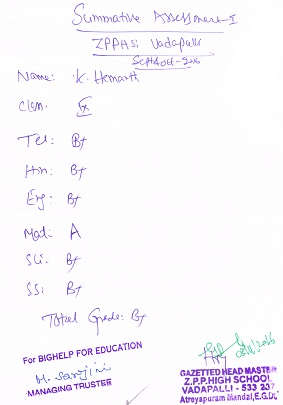 Summative Assessment-I
ZPPHSi Vadapalli
Name: K. Hemanth
Class: IX
Tel: B+
Hin: B+
Eng: B+
Mat: A
Sci: B+
SS: B+
Total Grade: B+
For BIGHELP FOR EDUCATION
MANAGING TRUSTEE
GAZETTED HEAD MASTER
Z.P.P.HIGH SCHOOL
VADAPALLI - 533 237
Atreyapuram Mandal, E.G.Dt.